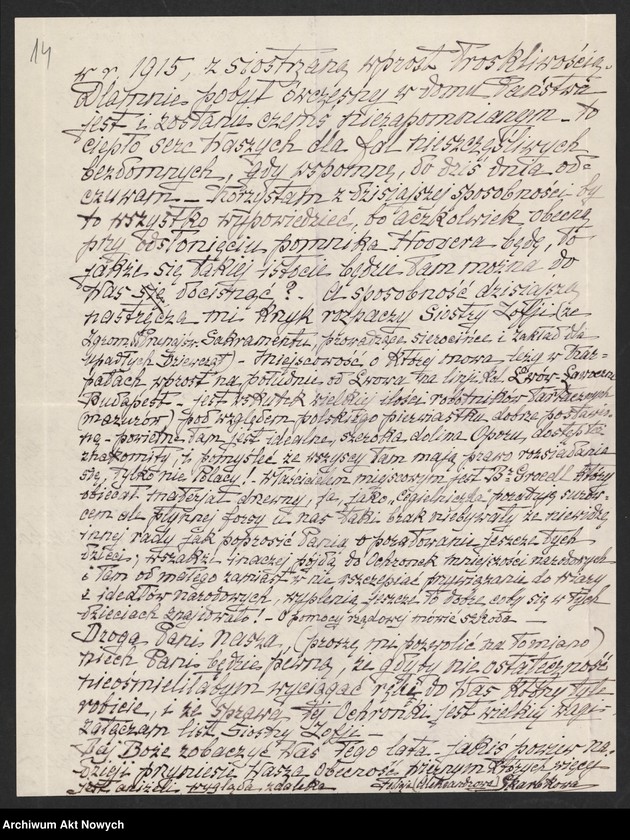 14
w r. 1915, z siostrzaną wprost troskliwością.
Dla mnie pobyt ówczesny w domu Państwa
jest i zostanie czemś niezapomnianem – to
ciepło serc Waszych dla fal nieszczęśliwych
bezdomnych, gdy wspomnę, do dziś dnia od=
czuwam – Korzystam z dzisiajszej sposobności by
to wszystko wypowiedzieć, bo aczkolwiek obecną
przy odsłonięciu pomnika Hoovera będę, to
jakże się takiej istocie będzie tam można do
Was się docisnąć? – A sposobność dzisiajszą
nastręcza mi krzyk rozpaczy Siostry Zofji (ze
Zgrom. Sakramentu, prowadzące sierocińce i zakład dla
upadłych Dziewcząt) – Miejscowość o której mowa leży w Kar-
patach wprost na południe od Lwowa na linji kol. Lwów-Ławoczne
Budapest – jest wskutek wielkiej ilości robotników tartacznych
(mazurów) pod względem polskiego pierwiastku dobrze postawio
na – powietrze tam jest idealne, szeroka dolina Oporu, dostępna
znakomity, i pomyśleć że wszyscy tam mają prawo rozsiadania
się, tylko nie Polacy! – Właścicielem miejscowym jest Br Groedl który
obiecał materjał drzewny, ja, jako
cem al płynnej forsy u nas taki brak niebywały że nie widzę
innej rady jak poprosić Panią o poratowanie jeszcze tych
dzieci; wszakże inaczej pójdą do Ochronek mniejszości narodowych
i tam od małego zamiast w nie wszczepiać przywiązanie do wiary
i ideałów narodowych, wyplenią jeszcze to dobre coby się w tych
dzieciach znajdowało! – O pomocy rządowej mówić szkoda –
Droga Pani nasza, (proszę mi pozwolić na to miano)
niech Pani będzie pewną, że gdyby nie ostateczność
nieośmieliłabym wyciągać ręki do Was którzy tyle
robicie, i że sprawa tej Ochronki jest wielkiej wagi –
załączam list Siostry Zofji –
Daj Boże zobaczyć Was tego lata – jakiś powiew na=
dzieji przyniesie Wasza obecność pewnym których więcej
jest aniżeli wygląda zdaleka
Julja (Aleksandrowa) Skarbkowa
Archiwum Akt Nowych